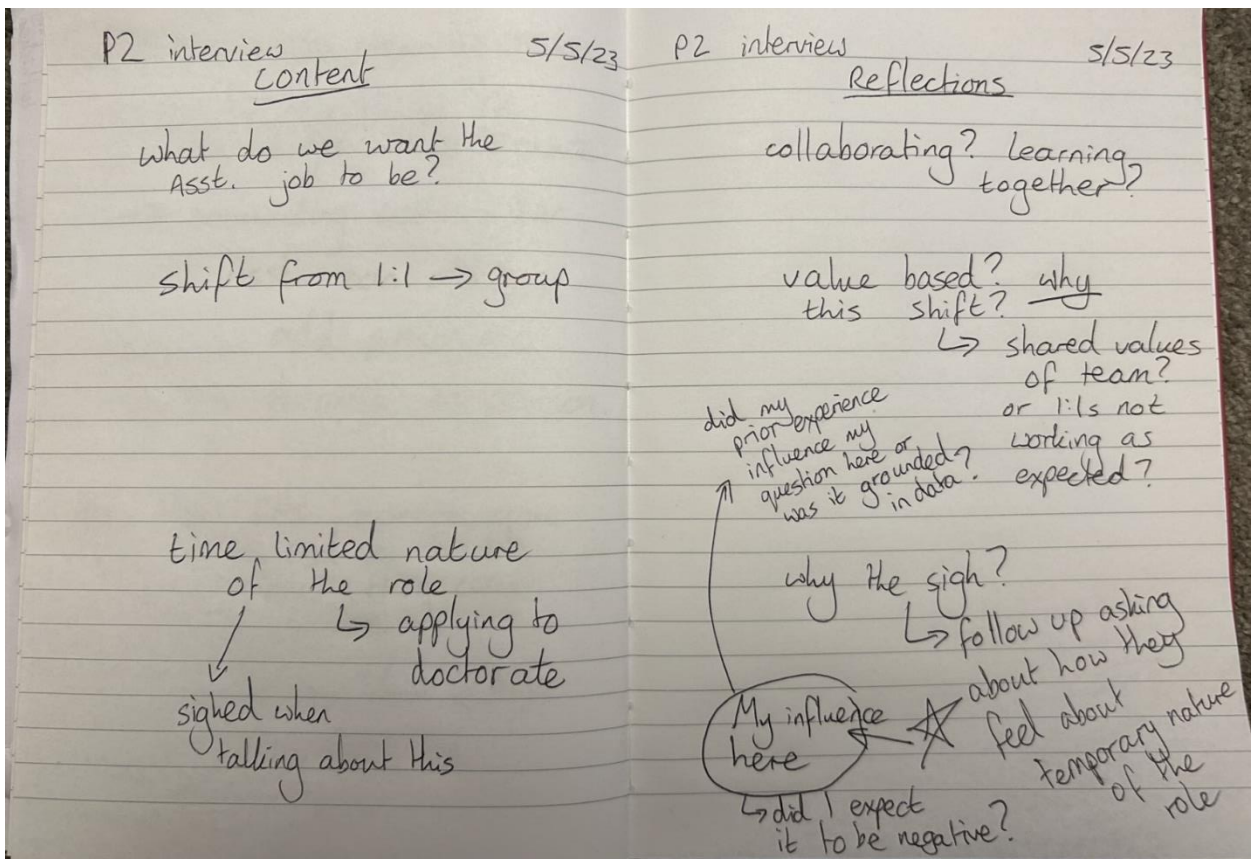 P2 interview 5/5/23
Content
what do we want the
Asst. job to be?
shift from 1:1 → group
time limited nature
of the role
↳ applying to
doctorate
sighed when
talking about this
P2 interview 5/5/23
Reflections
collaborating? learning
together?
value based? why
this shift?
↳ shared values
of team?
or 1:1s not
working as
expected?
did my
prior experience
influence my
question here or
was it grounded
in data?
why the sigh?
↳ follow up asking
about how they
feel about
temporary nature
of the
role
My influence
here
↳ did I expect
it to be negative?